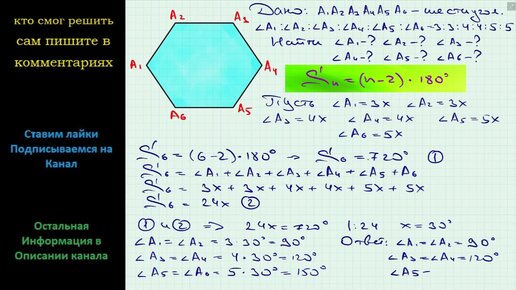 кто смог решить
сам пишите в
комментариях
Ставим лайки
Подписываемся на
Канал
Остальная
Информация в
Описании канала
A₁
A₂
A₃
A₄
A₅
A₆
Дано: A₁A₂A₃A₄A₅A₆ – шестиугол.
∠A₁:∠A₂:∠A₃:∠A₄:∠A₅:∠A₆=3:3:4:4:5:5
Найти ∠A₁-? ∠A₂-? ∠A₃-?
∠A₄-? ∠A₅-? ∠A₆-?
Sₙ=(n-2)·180°
Пусть ∠A₁=3x ∠A₂=3x
∠A₃=4x ∠A₄=4x ∠A₅=5x
∠A₆=5x
S₆=(6-2)·180° → S₆=720° ①
S₆=∠A₁+∠A₂+∠A₃+∠A₄+∠A₅+∠A₆
S₆=3x+3x+4x+4x+5x+5x
S₆=24x ②
① и ② => 24x=720° |:24 x=30°
∠A₁=∠A₂=3·30°=90°
∠A₃=∠A₄=4·30°=120°
∠A₅=∠A₆=5·30°=150°
Ответ: ∠A₁=∠A₂=90°
∠A₃=∠A₄=120°
∠A₅-